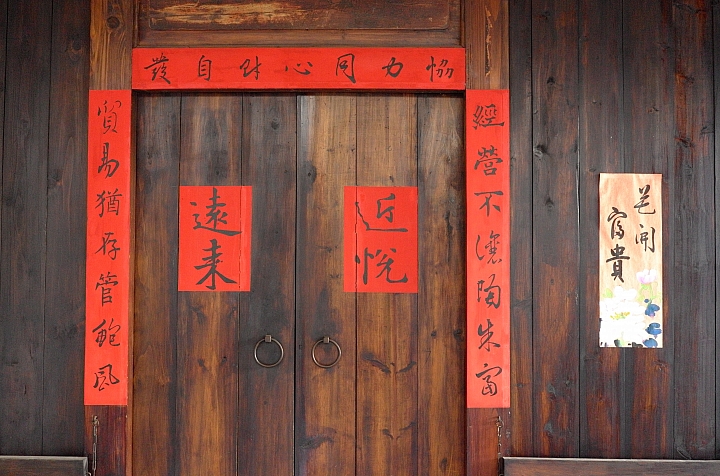 協力同心財自發
經營不讓陶朱富
貿易猶存管鮑風
近悅
遠來
花開
富貴